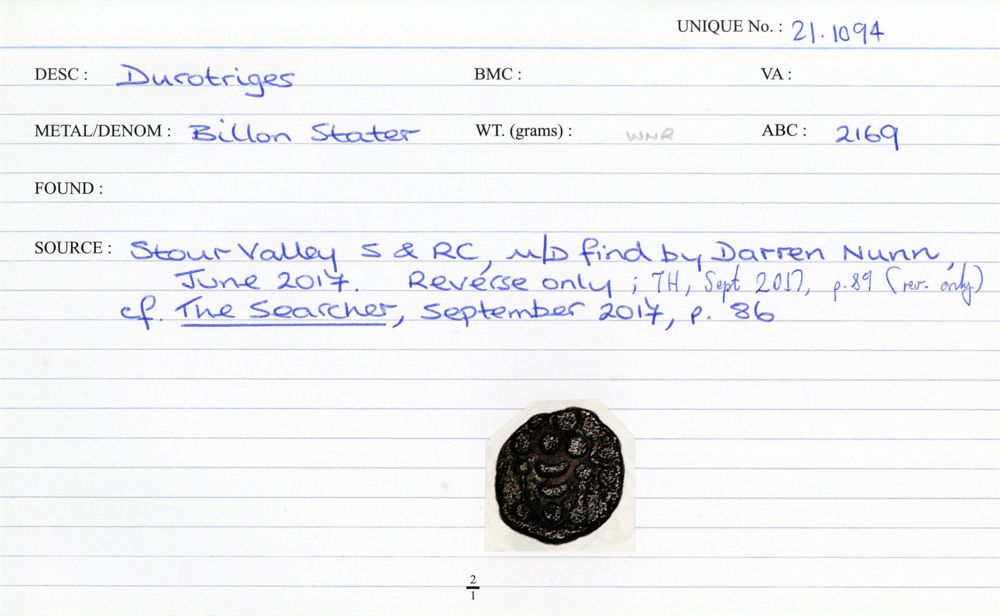 UNIQUE No. : 21.1094
DESC : Durotriges BMC : VA :
METAL/DENOM : Billon Stater WT. (grams) : WNR ABC : 2169
FOUND :
SOURCE : Stour Valley S & RC, m/D find by Darren Nunn,
June 2017. Reverse only ; TH, Sept 2017, p.89 (rev. only)
cf. The Searcher, September 2017, p. 86
2
1